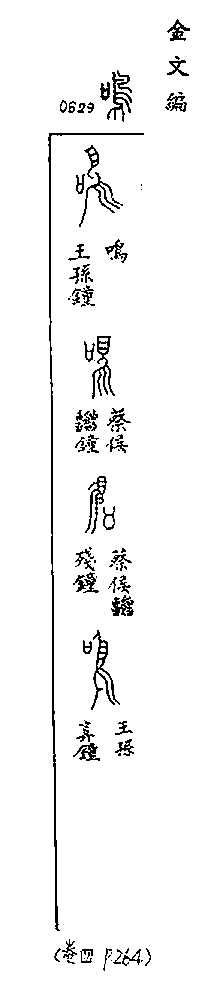 金文編
0629 鳴
鳴
王孫鐘
蔡侯
鐘
蔡侯
殘鐘
王孫
鐘
(卷四 P.264.)